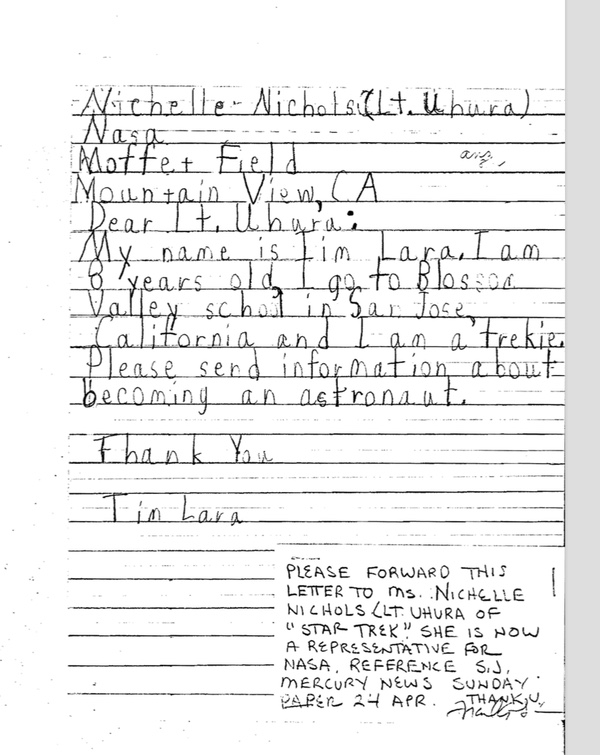 Nichelle-Nichols(Lt. Uhura)
Nasa
Moffet Field
Mountain View, CA
Dear Lt. Uhura:
My name is Tim Lara. I am
8 years old, I go to Blossom
Valley school in San Jose,
California and I am a "trekie.
Please send information about
becoming an astronaut.
Thank You
Tim Lara
PLEASE FORWARD THIS
LETTER TO MS. NICHELLE
NICHOLS (LT. UHURA OF
"STAR TREK". SHE IS NOW
A REPRESENTATIVE FOR
NASA. REFERENCE S.J.
MERCURY NEWS SUNDAY
PAPER 24 APR. THANK U,